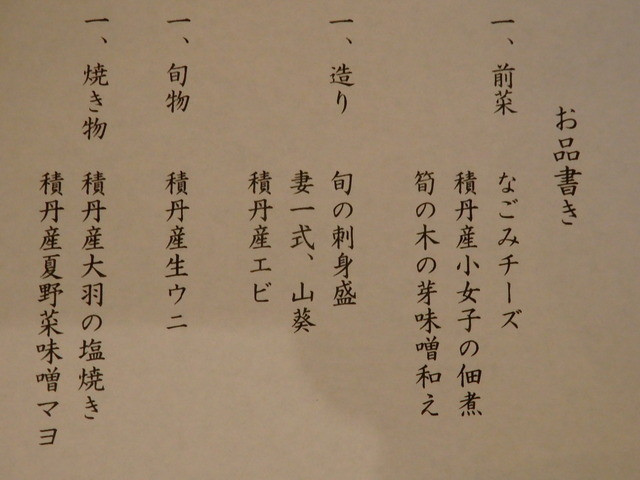 お品書き
一、前菜 なごみチーズ
積丹産小女子の佃煮
筍の木の芽味噌和え
一、造り 旬の刺身盛
妻一式、山葵
積丹産エビ
一、旬物 積丹産生ウニ
一、焼き物 積丹産大羽の塩焼き
積丹産夏野菜味噌マヨ